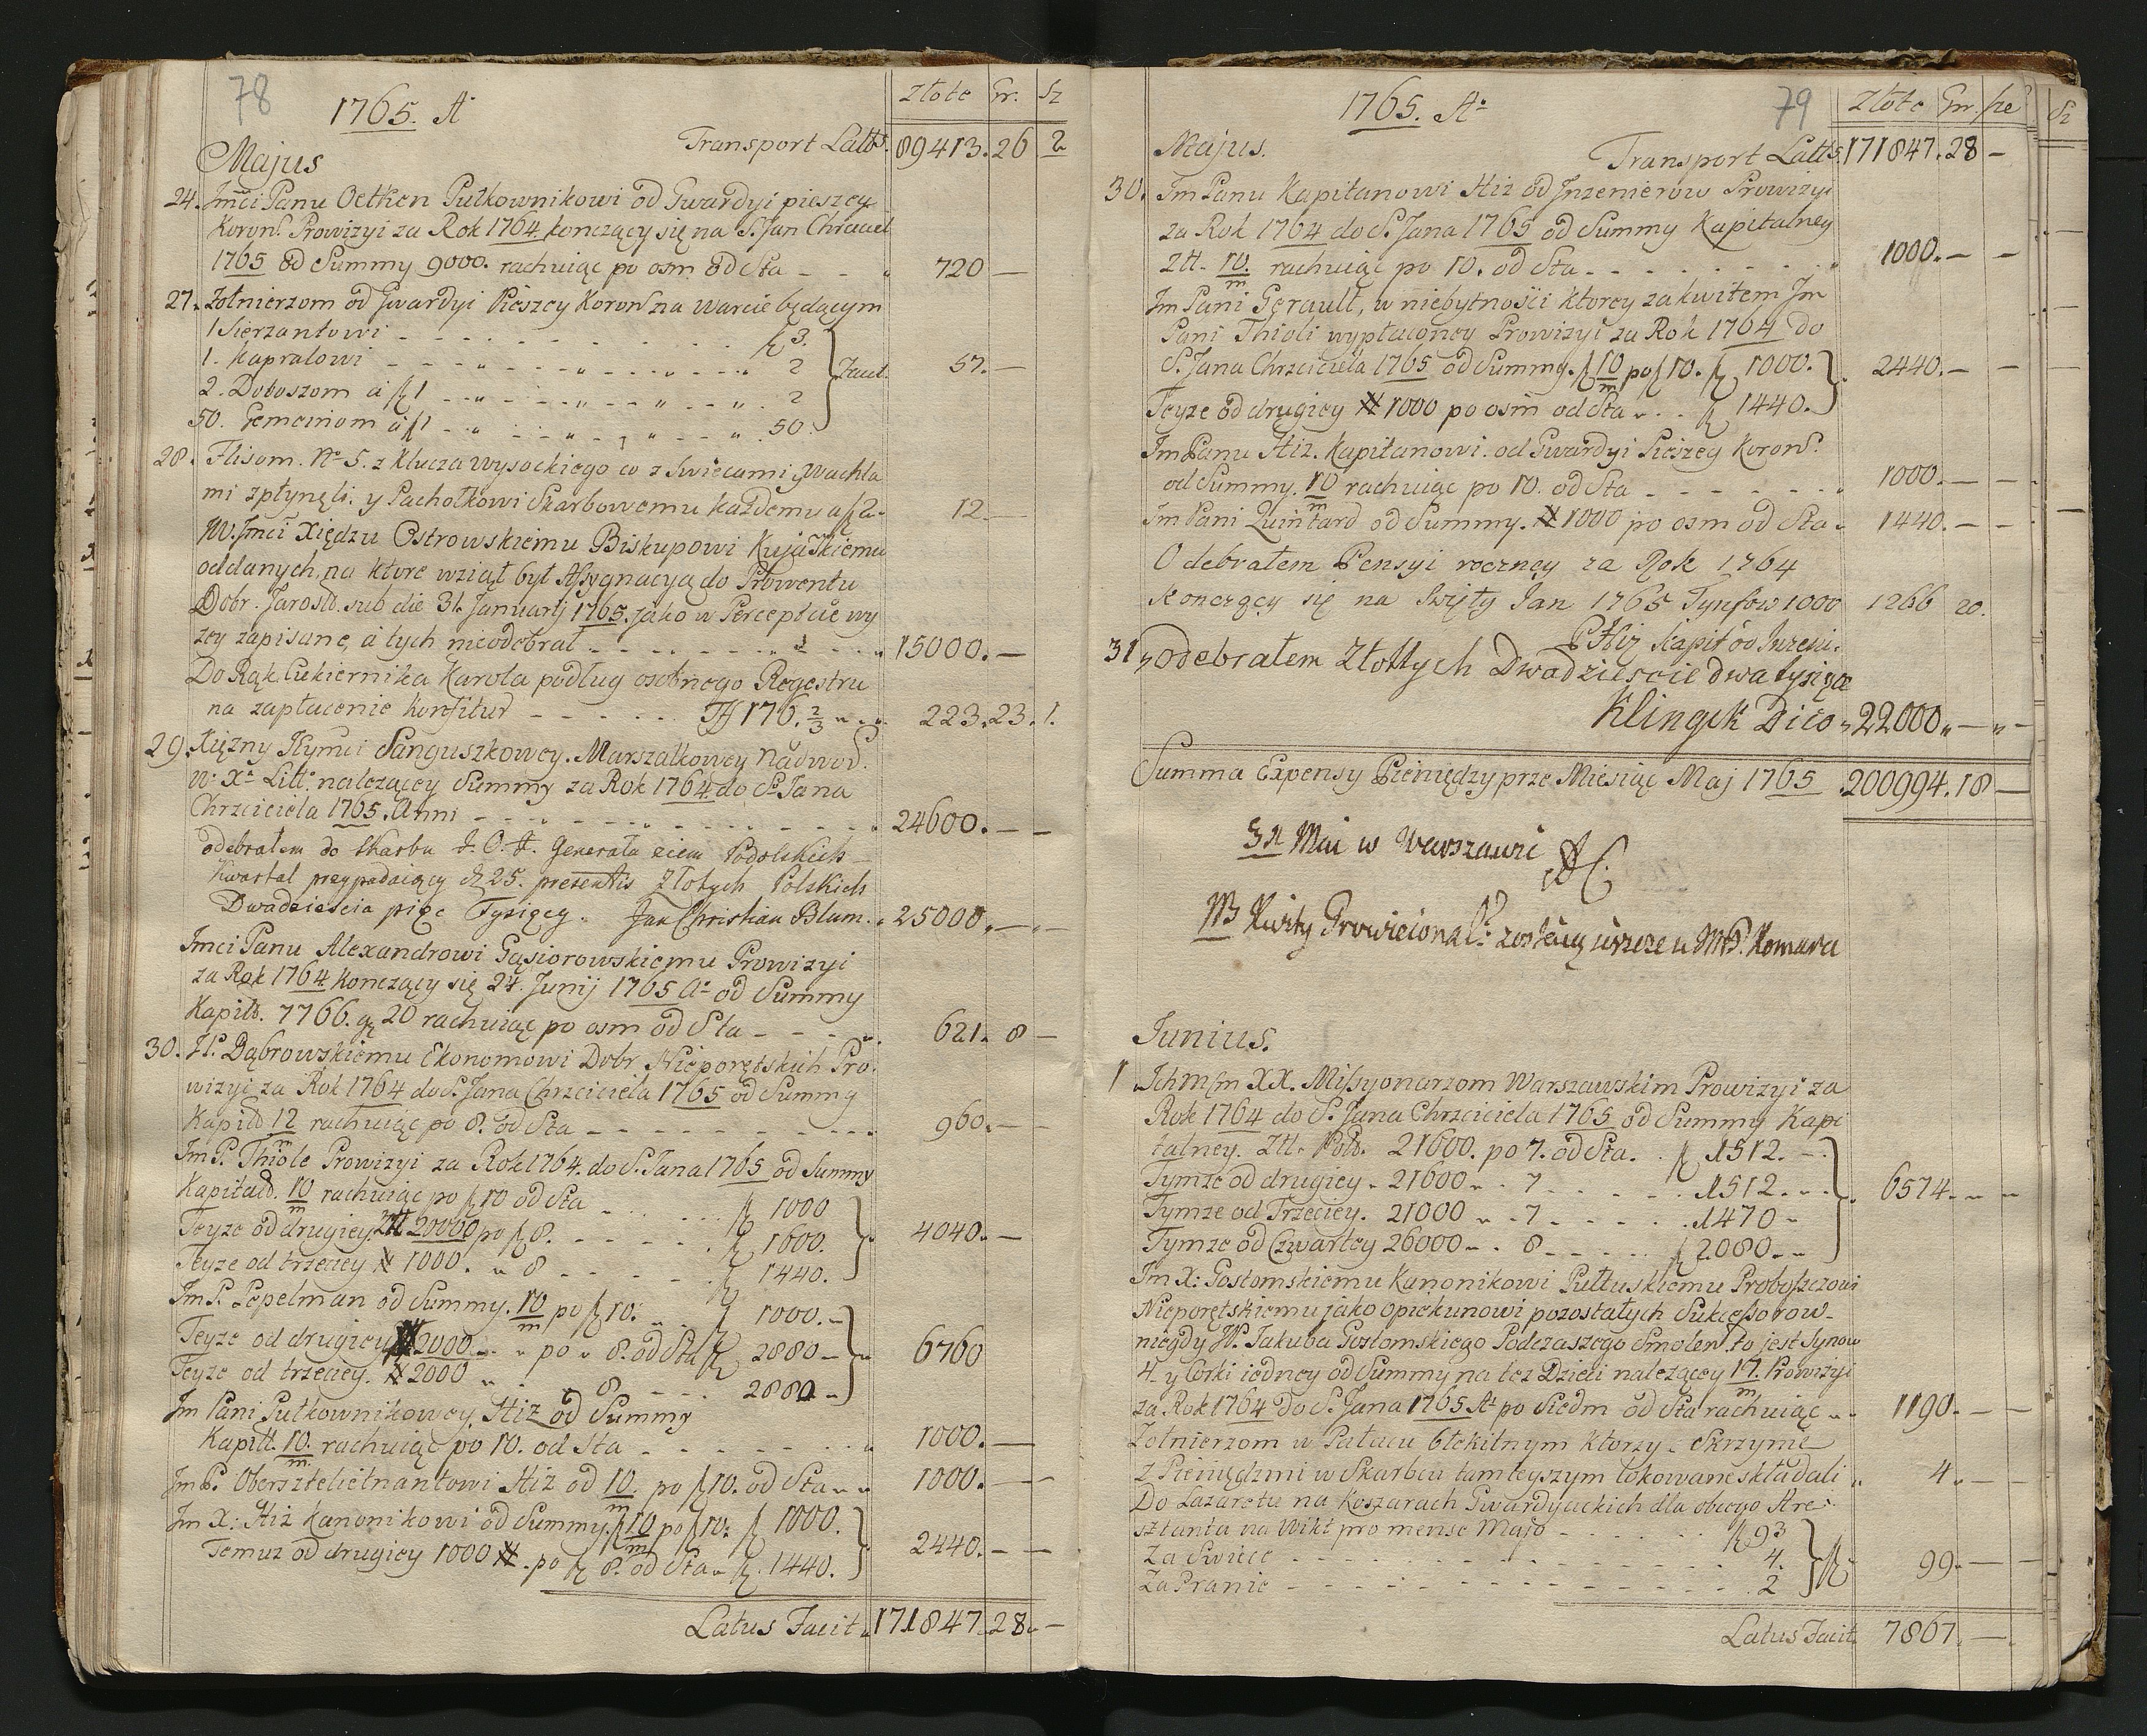 78
1765. Aº
Złote Gr. Sz
Majus Transport Latus. 89413. 26 2
24. Jmći Panu Oetken Pułkownikowi od Gwardyi pieszey
Koron. Prowizyi za Rok 1764. konczący się na S. Jan
1765 od Summy 9000. rachuiąc po osm od Sta - - 720 —
27. Żołnierzom od Gwardyi Pieszey Koron. na warcie będącym
1 Sierzantowi - - - 3.
1. Kapralowi - - - 2
2. Doboszom á 1 - - - 2 Facit. 57. —
50. Gemeinom á 1 - - - 50.
28. Flisom. Nº 5. z Klucza Wysockiego co z Swiecami y Wachla
mi zpłynęli. y Pachołkowi Skarbowemu każdemu a 2. 12. —
W. Jmći Xiędzu Ostrowskiemu Biskupowi Kujaskiemu
oddanych, na ktore wziął był Assygnacyą do Prowentu
Dobr. Jarosł. sub die 31. Januarij 1765. jako w Percepcie wy
zey zapisane, á tych nieodebrał - - - 15000. —
Do Rąk Cukiernika Karola podług osobnego Regestru
na zapłacenie Konfitur - - - 176. 2/3 - 223. 23. 1.
29. Xiężny Jeymći Sanguszkowey. Marszałkowey Nadwor.
W. Xa Litt. nalezącey Summy za Rok 1764. do S. Jana
Chrzciciela 1765. Anni - - - 24600. — —
odebrałem do Skarbu J. O. X. Generała ziem Podolskich
Kwartał przypadaiący d. 25. presentis Złotych Polskich
Dwadziescia pięc Tysięcy. Jan Christian Blum. 25000 „ — „ —
Jmći Panu Alexandrowi Gąsiorowskiemu Prowizyi
za Rok 1764 konczący się 24. Junij 1765 Aº od Summy
Kapitł. 7766. gr 20 rachuiąc po osm od Sta - - - 621. 8 —
30. JP. Dąbrowskiemu Ekonomowi Dobr Nieporętskich Pro
wizyi za Rok 1764 do S. Jana Chrzciciela 1765 od Summy
Kapitł 12/m rachuiąc po 8. od Sta - - - 960. — —
Jm P. Thiole Prowizyi za Rok 1764. do S. Jana 1765 od Summy
Kapitał. 10/m rachuiąc po 10 od Sta - - - 1000
Teyze od drugiey 20000 po 8. - - - 1600. 4040. —
Teyze od trzeciey 1000. „ 8 - - - 1440.
Jm P. Lepelman od Summy. 10/m po 10. - - 1000. —
Teyze od drugiey 2000 - - po „ 8. od Sta 2880 — 6760
Teyze od trzeciey. 2000 „ - „ 8 - - - 2880 „
Jm Pani Pułkownikowey Hiz od Summy
Kapitt. 10/m. rachuiąc po 10. od Sta - - - 1000. —
Jm P. Obersztelietnantowi Hiz od 10/m. po 10. od Sta „ „ 1000. — —
Jm X: Hiz Kanonikowi od Summy. 10/m po 10. 1000.
Temuz od drugiey 1000 . po 8. od Sta „ 1440. 2440. — —
Latus Facit. 171847. 28. —
79
1765. Aº
Złote Gr. sze
Sz
Majus. Transport Latus. 171847. 28 —
30. Jm Panu Kapitanowi Hiz od Inzenierow Prowizyi
za Rok 1764 do S. Jana 1765 od Summy Kapitalney
Ztł. 10/m. rachuiąc po 10. od Sta - - - 1000. — —
Jm Pani Gerault, w niebytnosći ktorey za kwitem Jm
Pani Thioli wypłaconey Prowizyi za Rok 1764 do
S. Jana Chrzciciela 1765 od Summy. 10/m po 10. 1000. 2440. — —
Teyze od drugiey 1000 po osm od Sta „ . . 1440.
Jm Panu Hiz. Kapitanowi. od Gwardyi Pieszey Koron.
od Summy. 10/m rachuiąc po 10. od Sta - - - 1000. — —
Jm Pani Quintard od Summy. 1000 po osm od Sta „ 1440. — —
Odebrałem Pensyi roczney za Rok 1764
Konczący się na Swięty Jan 1765 Tynfow 1000 1266 20.
Hiz Kapit. od Inzeni.
31 Odebrałem Złottych Dwadziescie dwa tysięce
Klingek Dito „ 22000 „ — „ —
Summa Expensy Pieniędzy prze Miesiąc Maj 1765 . 200994. 18 —
31 Mai w Warszawie AC.
NB Kwity Prowicional. zostaią ieszcze u MP. Komara
Junius.
1. Ichm XX. Missyonarzom Warszawskim Prowizyi za
Rok 1764 do S. Jana Chrzciciela 1765 od Summy Kapi
talney. Ztł. Pols. 21600. po 7. od Sta. . 1512. —
Tymze od drugiey „ 21600 „ . 7 - - - 1512. „ „ 6574. „ „
Tymze od Trzeciey. 21000 „ . 7 - - - 1470 „
Tymze od Czwartey 26000 „ . 8 - - - 2080. „
Jm X: Gostomskiemu Kanonikowi Pułtuskiemu Proboszczowi
Nieporętskiemu jako opiekunowi pozostałych Sukcessorow
niegdy W. Jakuba Gostomskiego Podczaszego Smolen. to jest Synow
4. y Corki iedney od Summy na tez Dzieći nalezącey 17/m. Prowizyi
za Rok 1764 do S. Jana 1765 Aº po Siedm od Sta rachuiąc „ . 1190. — —
Zołnierzom w Pałacu błekitnym ktorzy Skrzynie
z Pieniędzmi w Skarbcu tamteyszym lokowane składali „ 4. — —
Do Lazaretu na Koszarach Gwardyackich dla obcego Are
sztanta na Wikt pro mense Majo - - - 93
Za Swiece - - - 4. 99. — —
Za Pranie - - - 2
Latus Facit. 7867. —